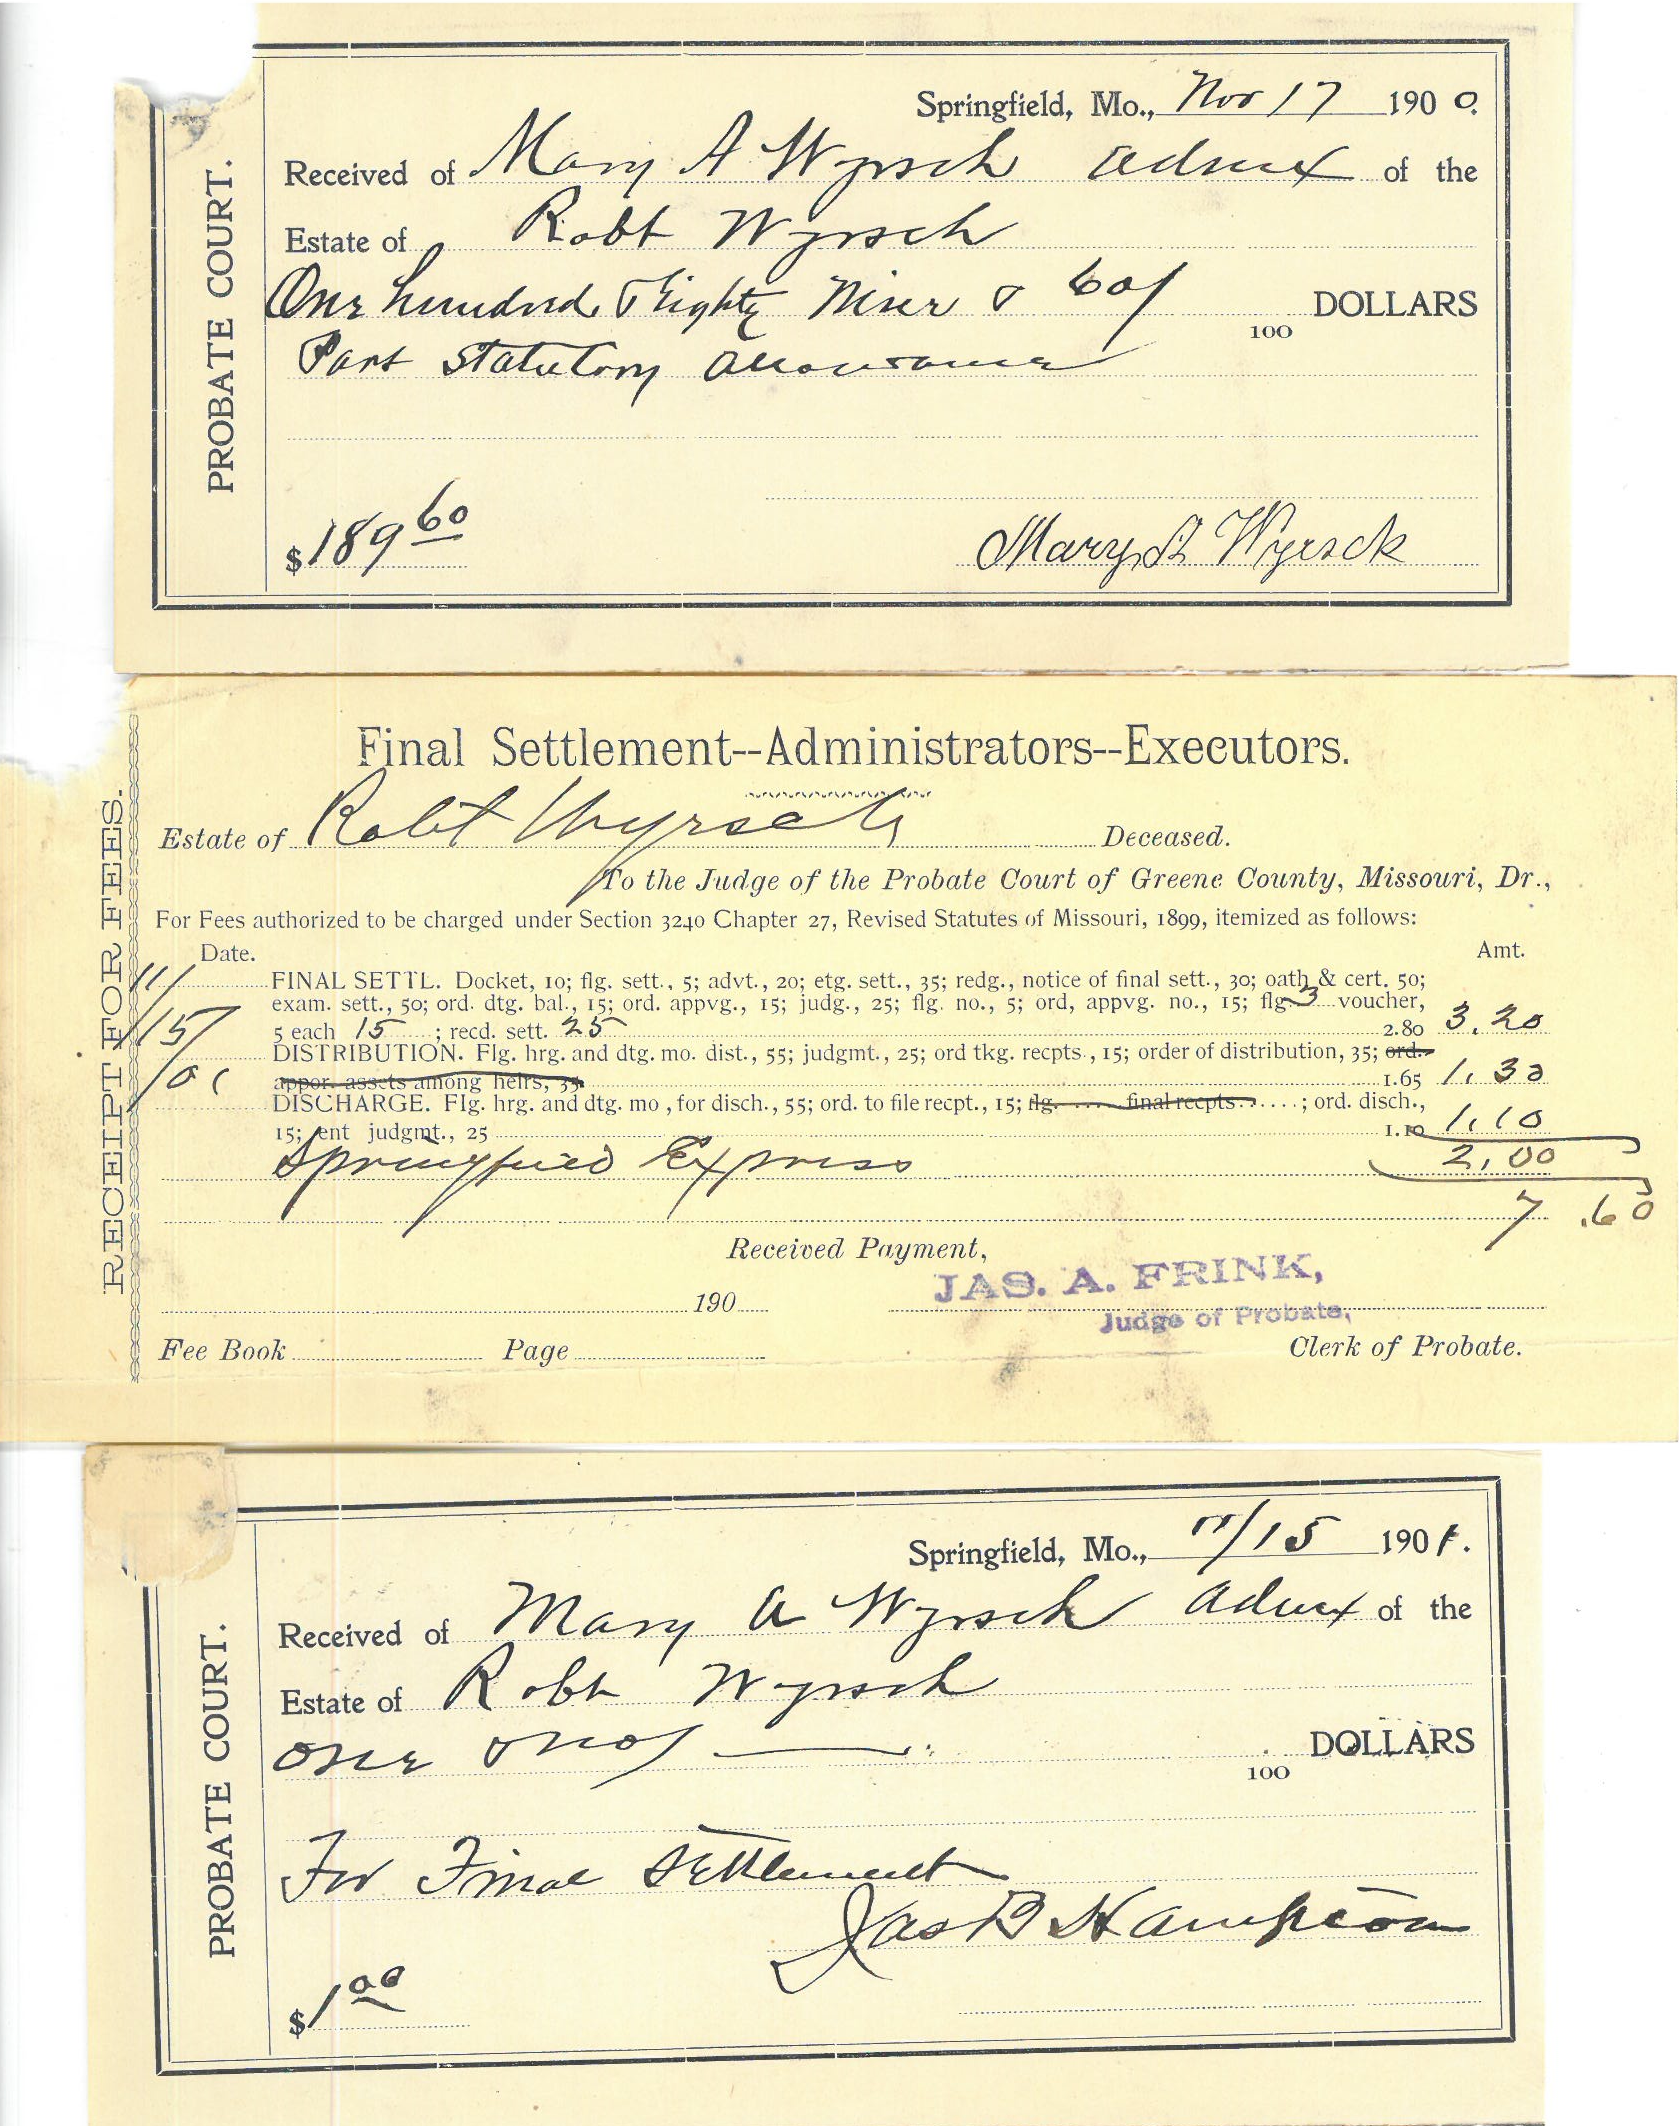 PROBATE COURT.
Springfield, Mo., Nov 17 1900.
Received of Mary A Wyrsch Admx of the
Estate of Robt Wyrsch
One hundred & Eighty Nine & 60/
100 DOLLARS
Part Statutory Allowance
$189 60
Mary A Wyrsch
RECEIPT FOR FEES.
Final Settlement--Administrators--Executors.
Estate of Robt Wyrsch Deceased.
To the Judge of the Probate Court of Greene County, Missouri, Dr.,
For Fees authorized to be charged under Section 3240 Chapter 27, Revised Statutes of Missouri, 1899, itemized as follows:
Date. Amt.
11/ FINAL SETTL. Docket, 10; flg. sett., 5; advt., 20; etg. sett., 35; redg., notice of final sett., 30; oath & cert. 50;
exam. sett., 50; ord. dtg. bal., 15; ord. appvg., 15; judg., 25; flg. no., 5; ord, appvg. no., 15; flg 3 voucher,
/15/ 5 each 15 ; recd. sett. 25 2.80 3.20
DISTRIBUTION. Flg. hrg. and dtg. mo. dist., 55; judgmt., 25; ord tkg. recpts., 15; order of distribution, 35; ord.
/01 appor. assets among heirs, 35 1.65 1.30
DISCHARGE. Flg. hrg. and dtg. mo , for disch., 55; ord. to file recpt., 15; flg. final recpts ; ord. disch.,
15; ent judgmt., 25 1.10 1.10
Springfield Express 2.00
7.60
Received Payment,
JAS. A. FRINK,
190
Judge of Probate,
Fee Book Page Clerk of Probate.
PROBATE COURT.
Springfield, Mo., 11/15 1901.
Received of Mary A Wyrsch Admx of the
Estate of Robt Wyrsch
One & no/
100 DOLLARS
For Final Settlement
Jas B Hampton
$1 00